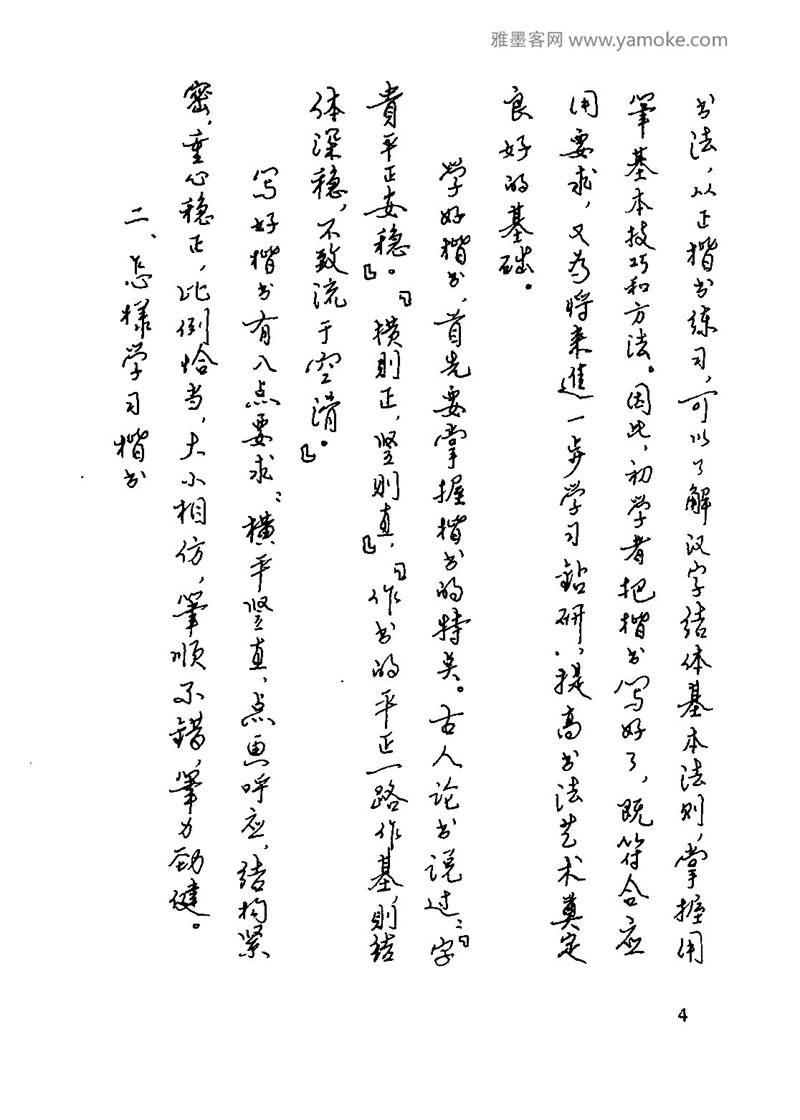 雅墨客网 www.yamoke.com
书法,以正楷书练习,可以了解汉字结体基本法则,掌握用
笔基本技巧和方法。因此,初学者把楷书写好了,既符合应
用要求,又为将来進一步学习鉆研,提高书法艺术奠定
良好的基础。
学好楷书,首先要掌握楷书的特点。古人论书说过:『字
貴平正安稳。』『横则正,竖则直,』『作书的平正一路作基,则结
体深稳,不致流于空滑。』
写好楷书有八点要求:横平竖直,点画呼应,结构紧
密,重心稳正,比例恰当,大小相仿,笔顺不错,笔力劲健。
二、怎樣学习楷书
4